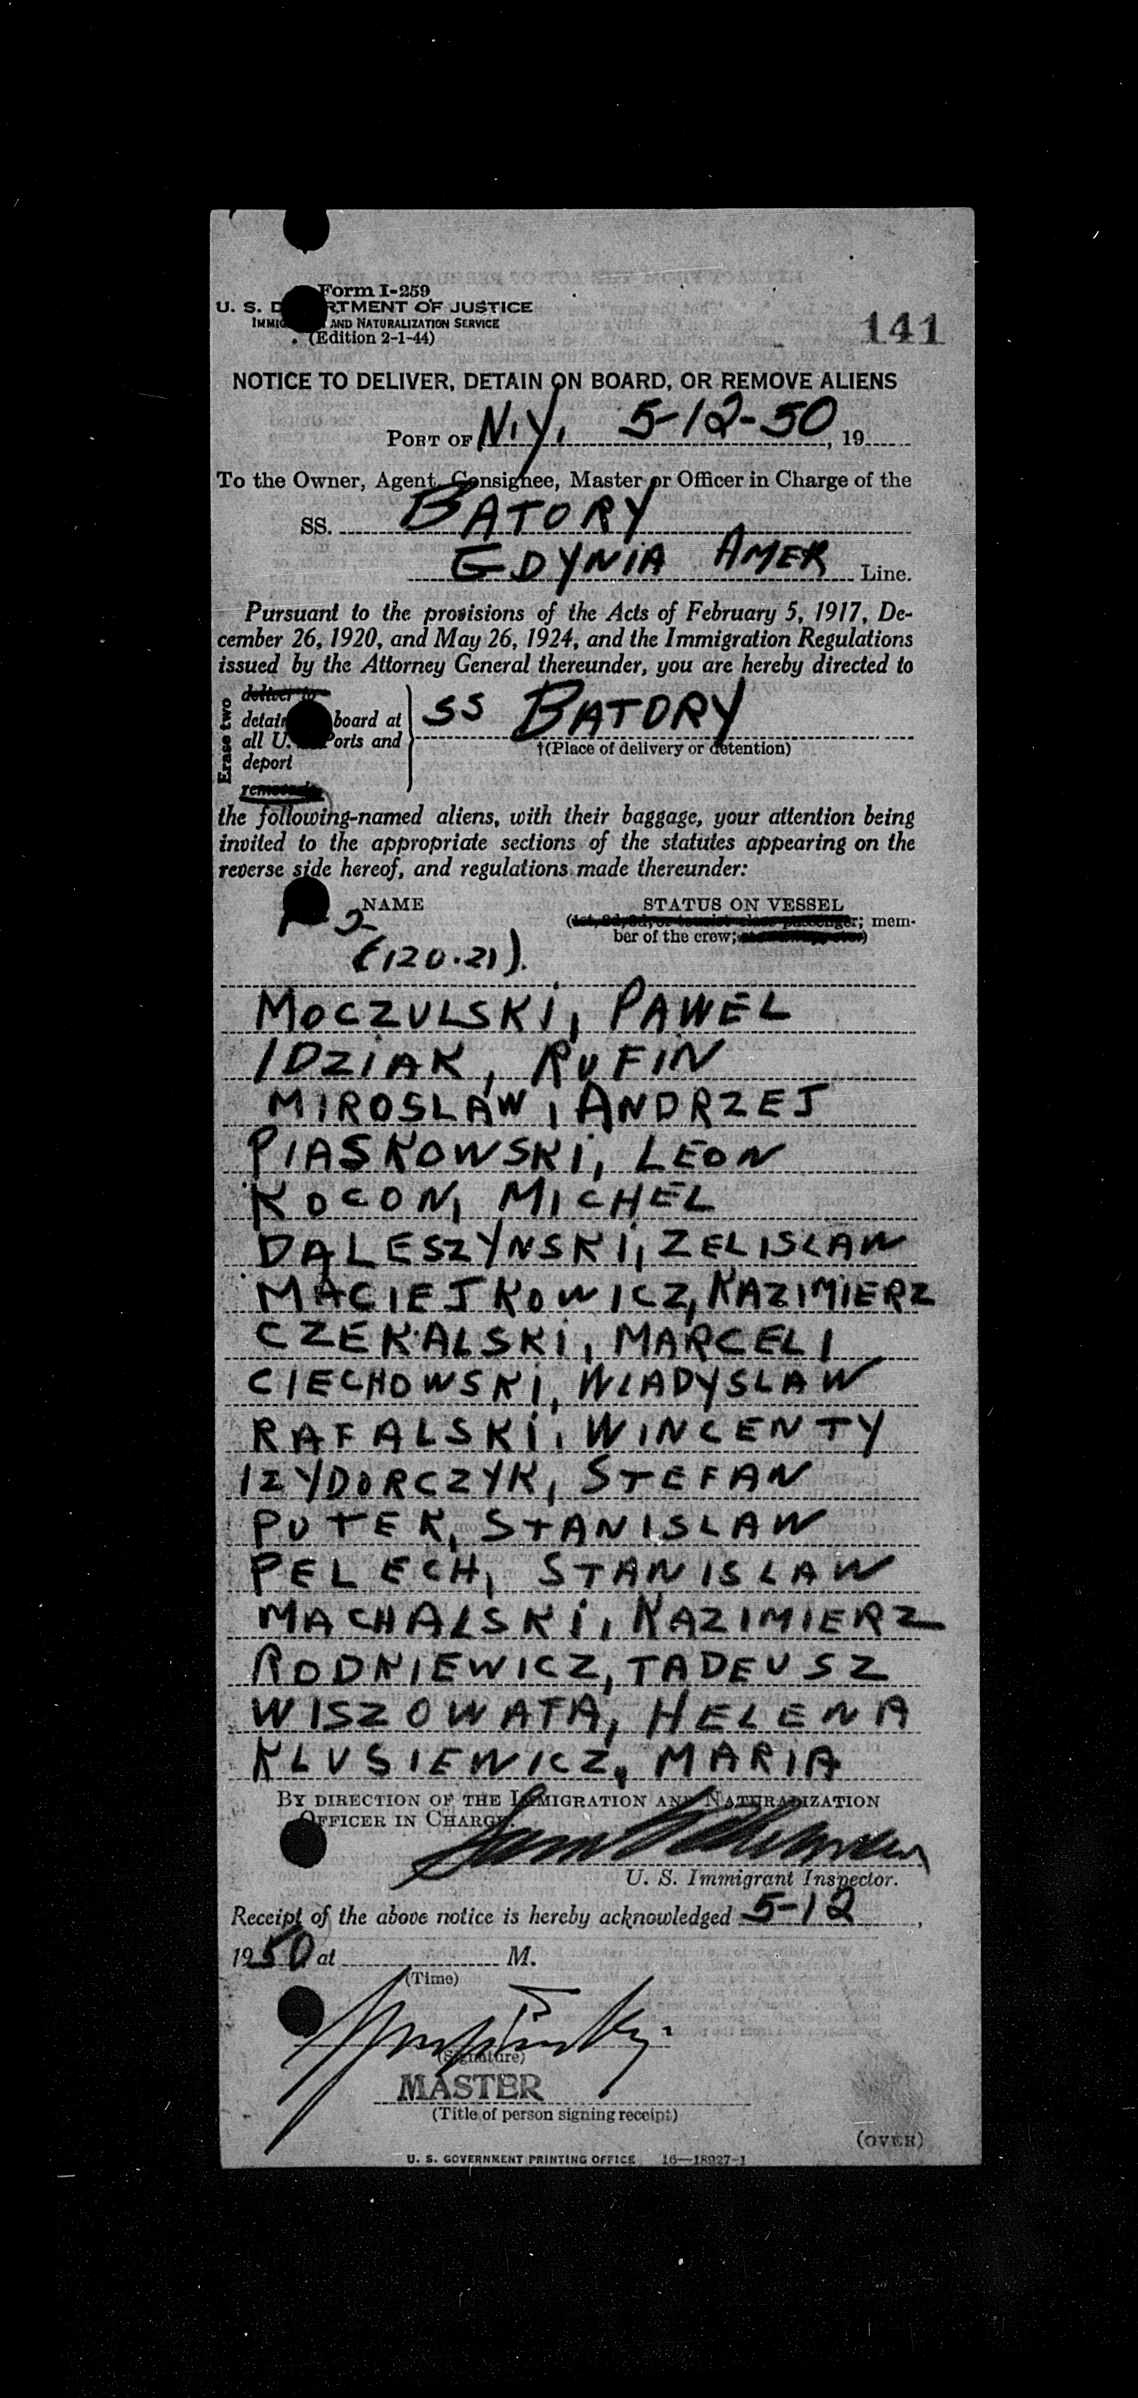 Form I-259
U. S. D RTMENT OF JUSTICE
IMMIG AND NATURALIZATION SERVICE
(Edition 2-1-44)
141
NOTICE TO DELIVER, DETAIN ON BOARD, OR REMOVE ALIENS
PORT OF N.Y. 5-12-50, 19
To the Owner, Agent, Consignee, Master or Officer in Charge of the
SS. BATORY
GDYNIA AMER Line.
Pursuant to the provisions of the Acts of February 5, 1917, De-
cember 26, 1920, and May 26, 1924, and the Immigration Regulations
issued by the Attorney General thereunder, you are hereby directed to
Erase two
deliver to
detain board at
all U. Ports and
deport
remove to
SS BATORY
†(Place of delivery or detention)
the following-named aliens, with their baggage, your attention being
invited to the appropriate sections of the statutes appearing on the
reverse side hereof, and regulations made thereunder:
NAME STATUS ON VESSEL
(1st, 2d, 3d, or tourist class passenger; mem-
ber of the crew;
(120.21).
MOCZULSKI, PAWEL
IDZIAK, RUFIN
MIROSLAW, ANDRZEJ
PIASKOWSKI, LEON
KOCON, MICHEL
DALESZYNSKI, ZELISLAW
MACIEJKOWICZ, KAZIMIERZ
CZEKALSKI, MARCELI
CIECHOWSKI, WLADYSLAW
RAFALSKI, WINCENTY
IZYDORCZYK, STEFAN
PUTEK, STANISLAW
PELECH, STANISLAW
MACHALSKI, KAZIMIERZ
RODKIEWICZ, TADEUSZ
WISZOWATA, HELENA
KLUSIEWICZ, MARIA
BY DIRECTION OF THE IMMIGRATION AND NATURALIZATION
OFFICER IN CHARGE.
U. S. Immigrant Inspector.
Receipt of the above notice is hereby acknowledged 5-12,
1950 at M.
(Time)
(Signature)
MASTER
(Title of person signing receipt)
(OVER)
U. S. GOVERNMENT PRINTING OFFICE 16—18927-1